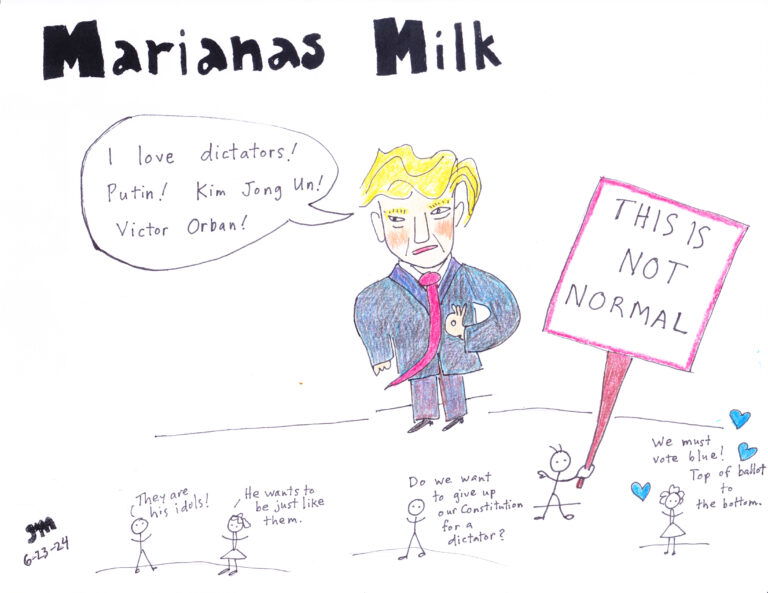 Marianas Milk
I love dictators!
Putin! Kim Jong Un!
Victor Orban!
THIS IS
NOT
NORMAL
They are
his idols!
He wants to
be just like
them.
Do we want
to give up
our Constitution
for a
dictator?
We must
vote blue!
Top of ballot
to
the bottom.
6-23-24